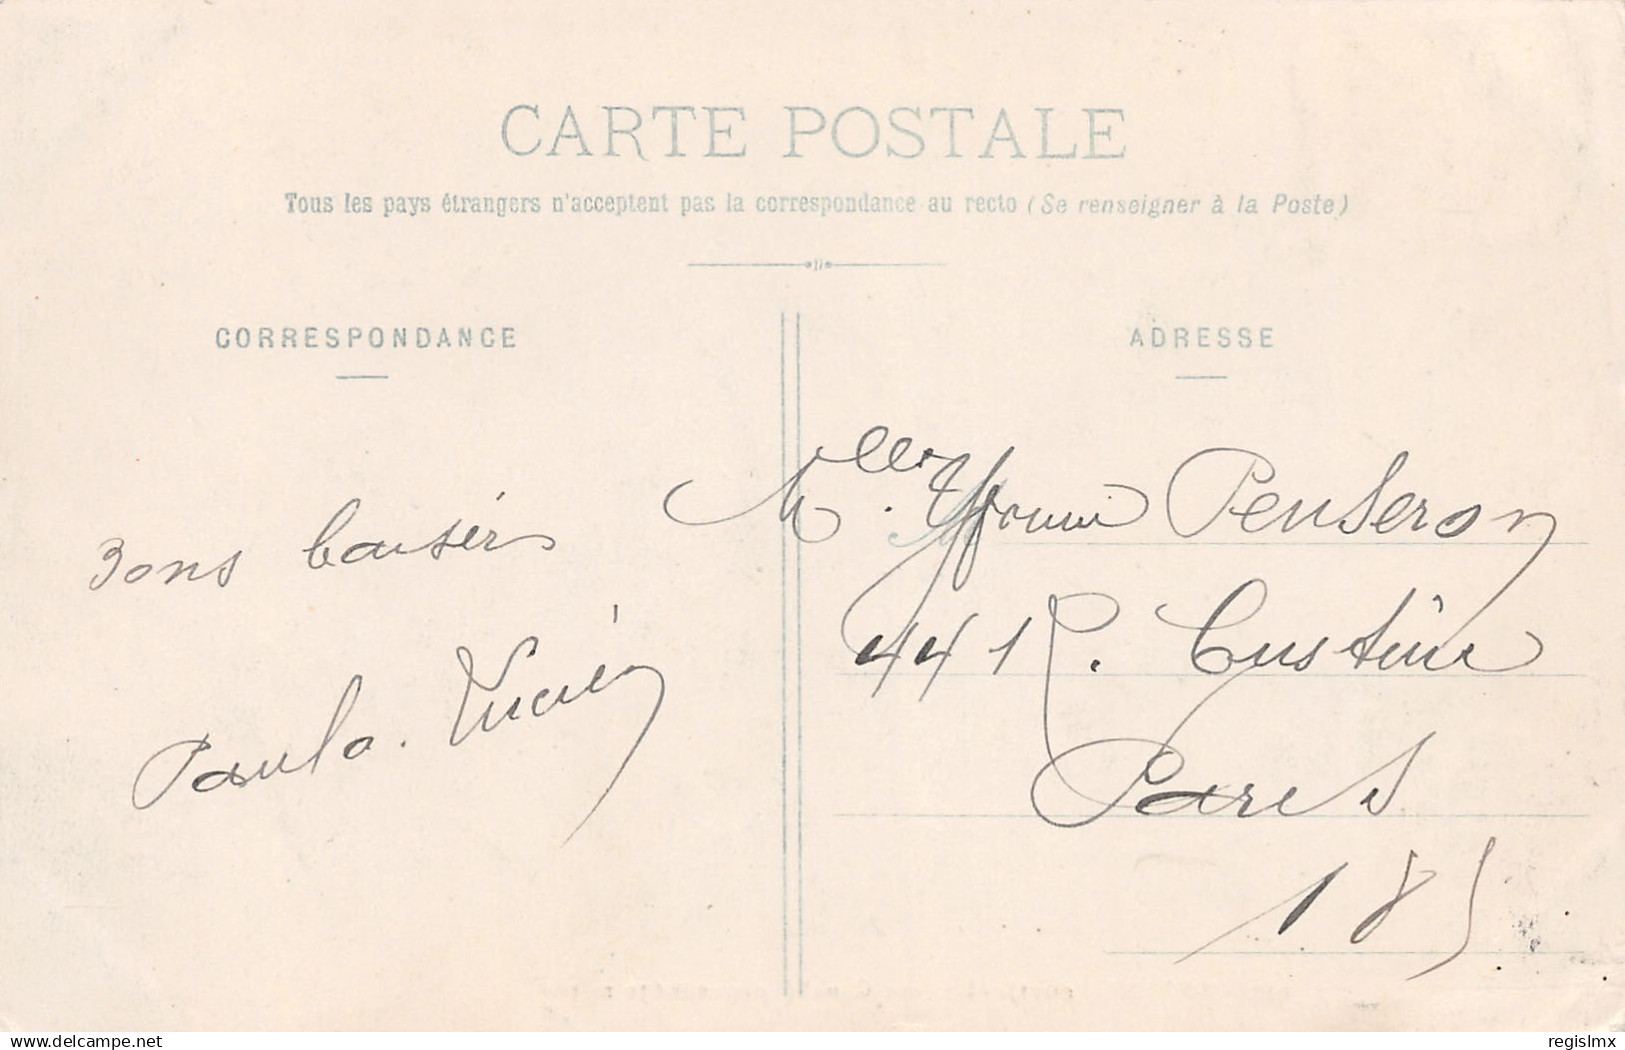 CARTE POSTALE
Tous les pays étrangers n'acceptent pas la correspondance au recto (Se renseigner à la Poste)
CORRESPONDANCE
ADRESSE
Bons baisers
Paulo. Lucien
Mlle. Yvonne Penseron
44 R. Custine
Paris
18
delcampe.net
regislmx